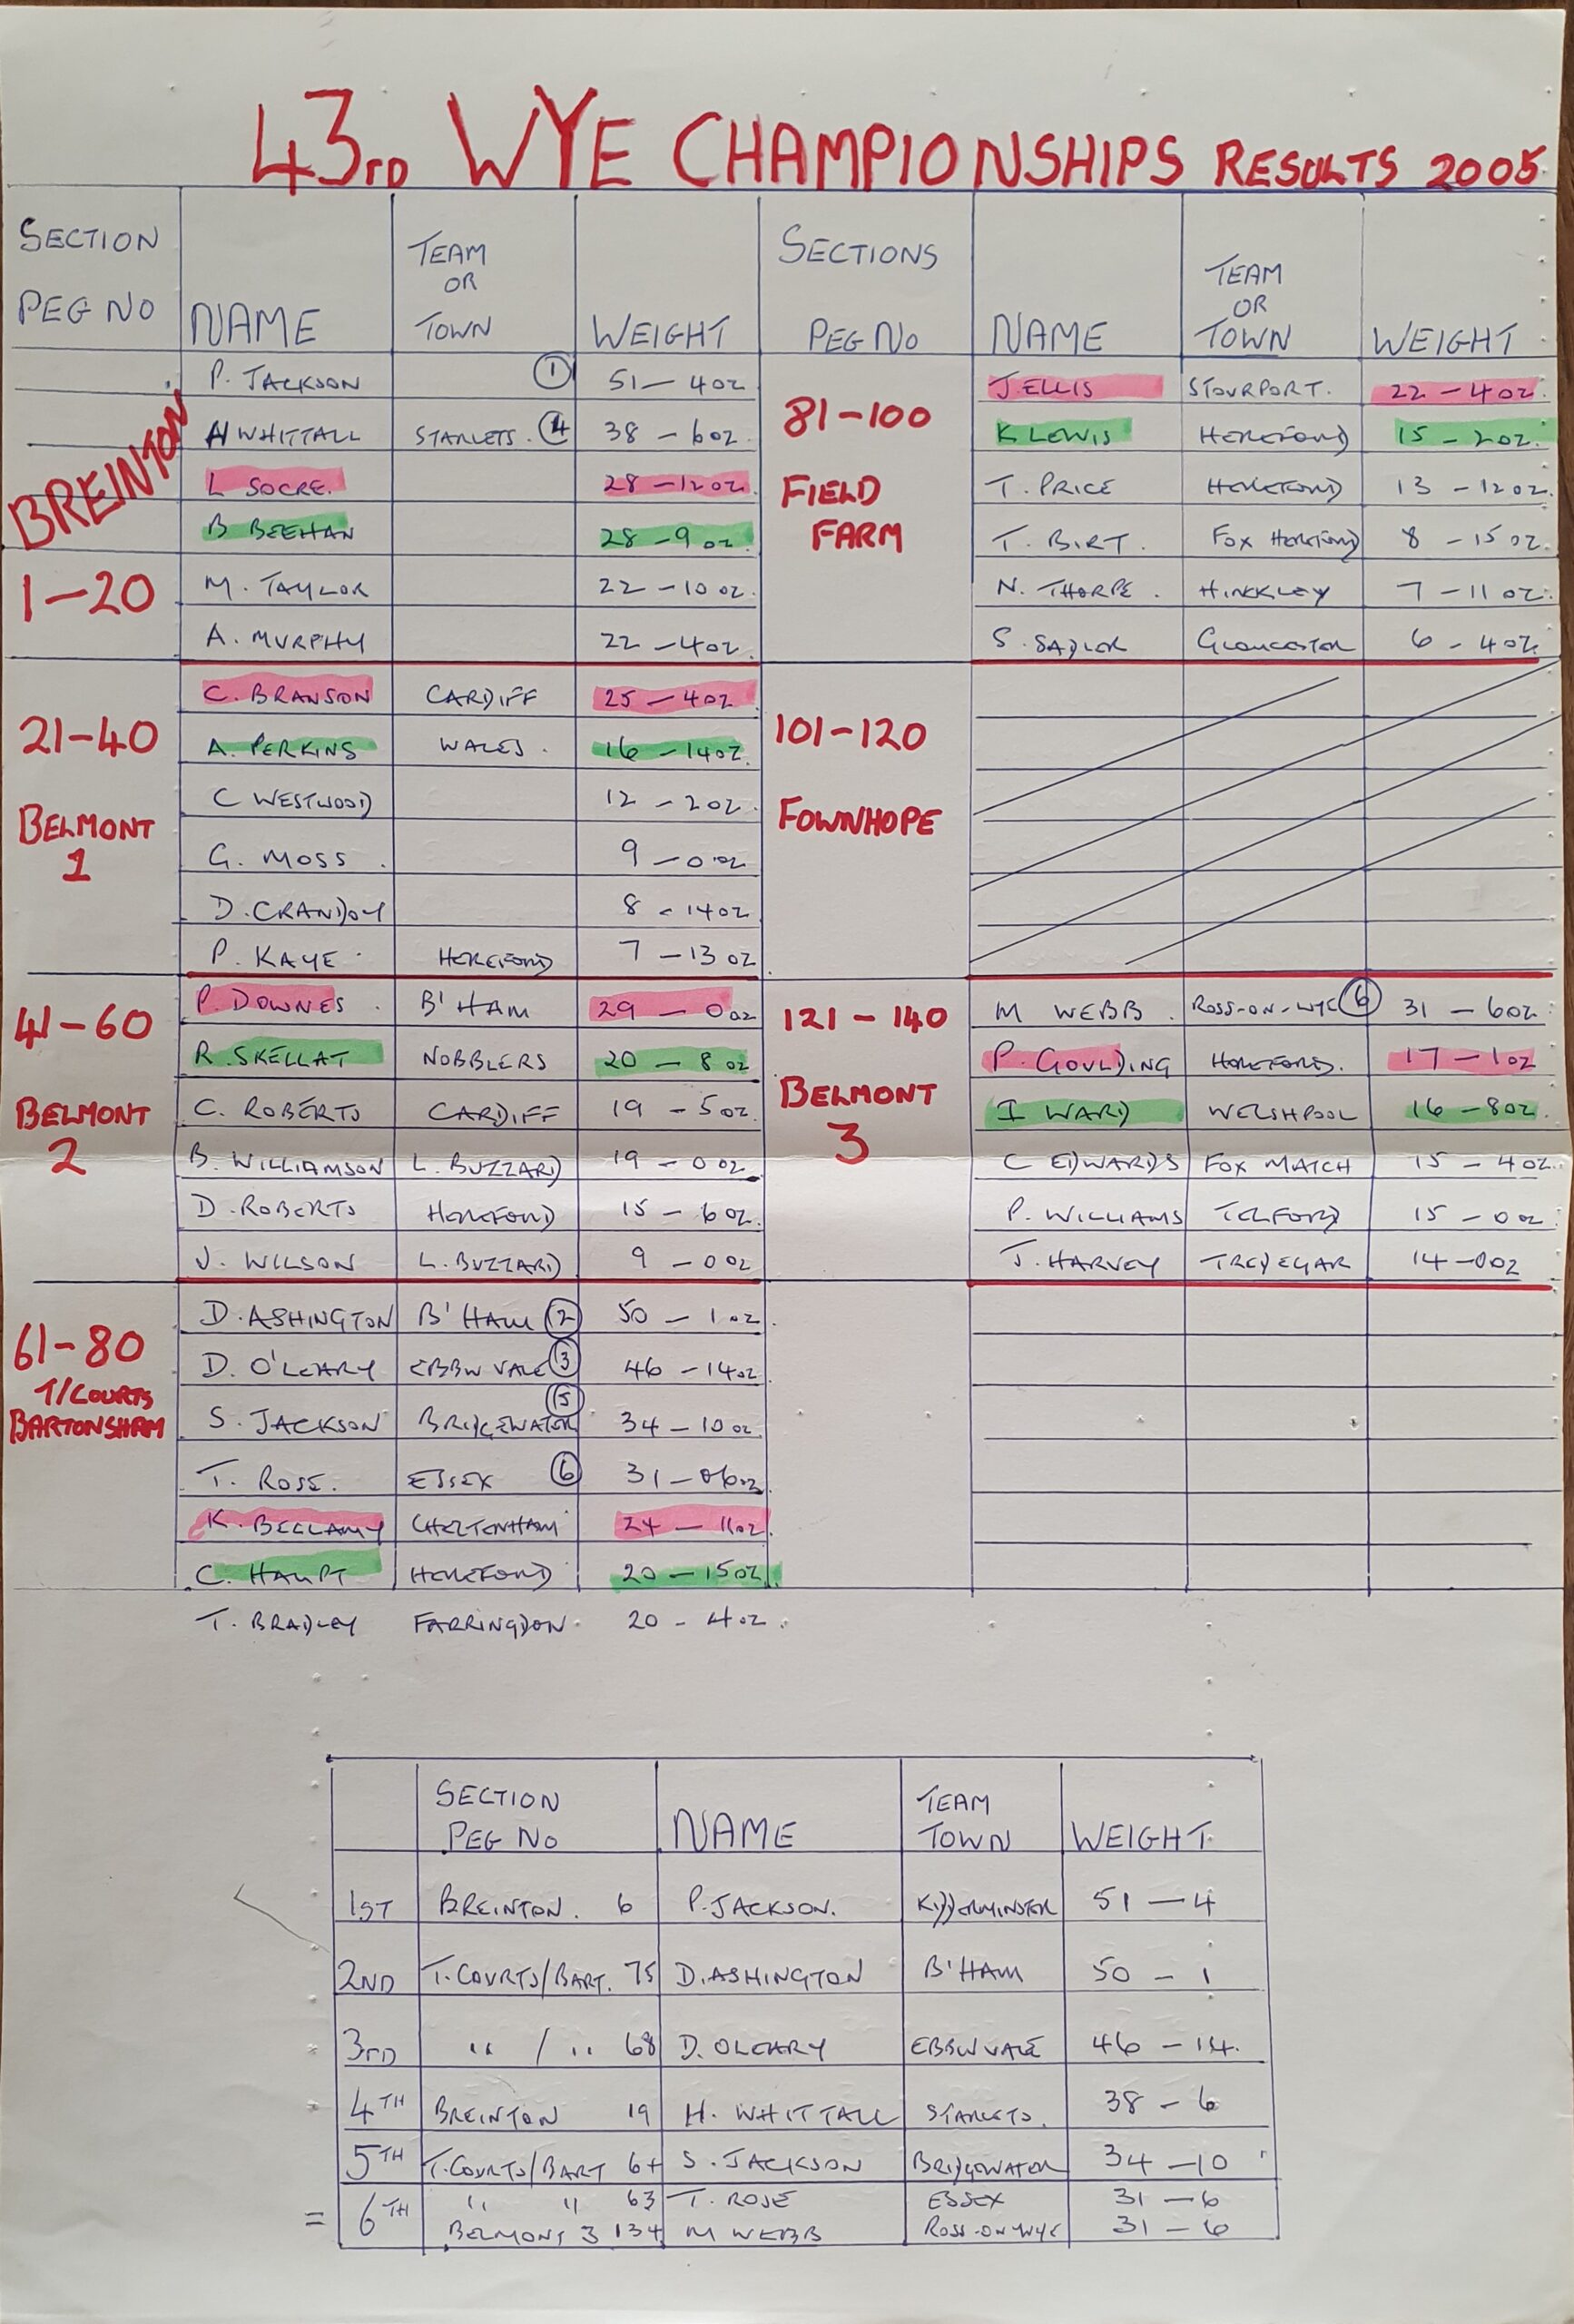 43rd WYE CHAMPIONSHIPS RESULTS 2005
SECTION PEG NO NAME TEAM OR TOWN WEIGHT
BREINTON
1-20
P. JACKSON ① 51 - 4oz
H WHITTALL STARLETS. ④ 38 - 6oz
L SOCRE. 28 - 12oz
B BEEHAN 28 - 9oz
M. TAYLOR 22 - 10oz
A. MURPHY 22 - 4oz
21-40
BELMONT
1
C. BRANSON CARDIFF 25 - 4oz
A. PERKINS WALES. 16 - 14oz
C WESTWOOD 12 - 2oz
G. MOSS. 9 - 0oz
D. CRANDOY 8 - 14oz
P. KAYE HEREFORD 7 - 13oz
41-60
BELMONT
2
P. DOWNES. B'HAM 29 - 0oz
R. SKELLAT NOBBLERS 20 - 8oz
C. ROBERTS CARDIFF 19 - 5oz
B. WILLIAMSON L. BUZZARD 19 - 0oz
D. ROBERTS HEREFORD 15 - 6oz
V. WILSON L. BUZZARD 9 - 0oz
61-80
T/COURTS
BARTONSHAM
D. ASHINGTON B'HAM ② 50 - 1oz
D. O'LEARY EBBW VALE ③ 46 - 14oz
S. JACKSON BRIDGEWATER ⑤ 34 - 10oz
T. ROSE. ESSEX ⑥ 31 - 06oz
K. BELLAMY CHELTENHAM 24 - 11oz
C. HAUPT HEREFORD 20 - 15oz
T. BRADLEY FARRINGDON. 20 - 4oz.
SECTIONS PEG NO NAME TEAM OR TOWN WEIGHT
81-100
FIELD
FARM
J. ELLIS STOURPORT. 22 - 4oz.
K LEWIS HEREFORD 15 - 2oz.
T. PRICE HEREFORD 13 - 12oz.
T. BIRT. FOX HEREFORD 8 - 15oz.
N. THORPE. HINKKLEY 7 - 11oz.
S. SADLER GLOUCESTER 6 - 4oz.
101-120
FOWNHOPE
121-140
BELMONT
3
M WEBB. ROSS-ON-WYE ⑥ 31 - 6oz.
P. GOULDING HEREFORD. 17 - 1oz
I WARD WELSHPOOL 16 - 8oz.
C EDWARDS FOX MATCH 15 - 4oz.
P. WILLIAMS TELFORD 15 - 0oz.
J. HARVEY TREDEGAR 14 - 0oz
SECTION PEG NO NAME TEAM TOWN WEIGHT
1ST BREINTON. 6 P. JACKSON. KIDDERMINSTER 51 - 4
2ND T. COURTS/BART. 75 D. ASHINGTON B'HAM 50 - 1
3RD " / " 68 D. OLEARY EBBW VALE 46 - 14.
4TH BREINTON 19 H. WHITTALL STARLETS. 38 - 6
5TH T. COURTS/BART 64 S. JACKSON BRIDGEWATER 34 - 10
= 6TH " " 63 T. ROSE ESSEX 31 - 6
BELMONT 3 134 M WEBB ROSS-ON-WYE 31 - 6